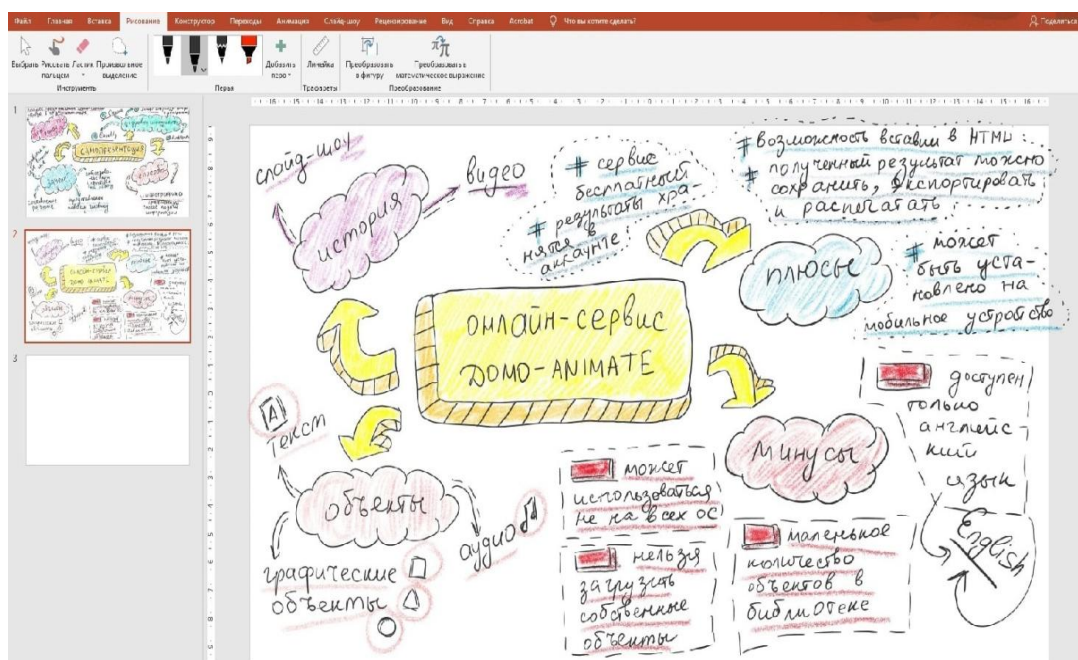 Файл Главная Вставка Рисование Конструктор Переходы Анимация Слайд-шоу Рецензирование Вид Справка Acrobat Что вы хотите сделать? Поделиться
Выбрать
Рисовать пальцем
Ластик
Произвольное выделение
Добавить перо
Линейка
Преобразовать в фигуру
Преобразовать в математическое выражение
Инструменты
Перья
Трафареты
Преобразование
1
САМОПРЕЗЕНТАЦИЯ
2
3
слайд-шоу
история
видео
# сервис
бесплатный
# результаты хра-
нятся в
аккаунте!
# Возможность вставки в HTML!
# полученный результат можно
сохранить, экспортировать
и распечатать
плюсы
# может
быть уста-
новлено на
мобильное устройство
ОНЛАЙН-СЕРВИС
DOMO-ANIMATE
A
текст
объекты
аудио
графические
объекты
минусы
доступен
только
английс-
кий
язык
English
может
использоваться
не на всех ОС
нельзя
загрузить
собственные
объекты
маленькое
количество
объектов в
библиотеке